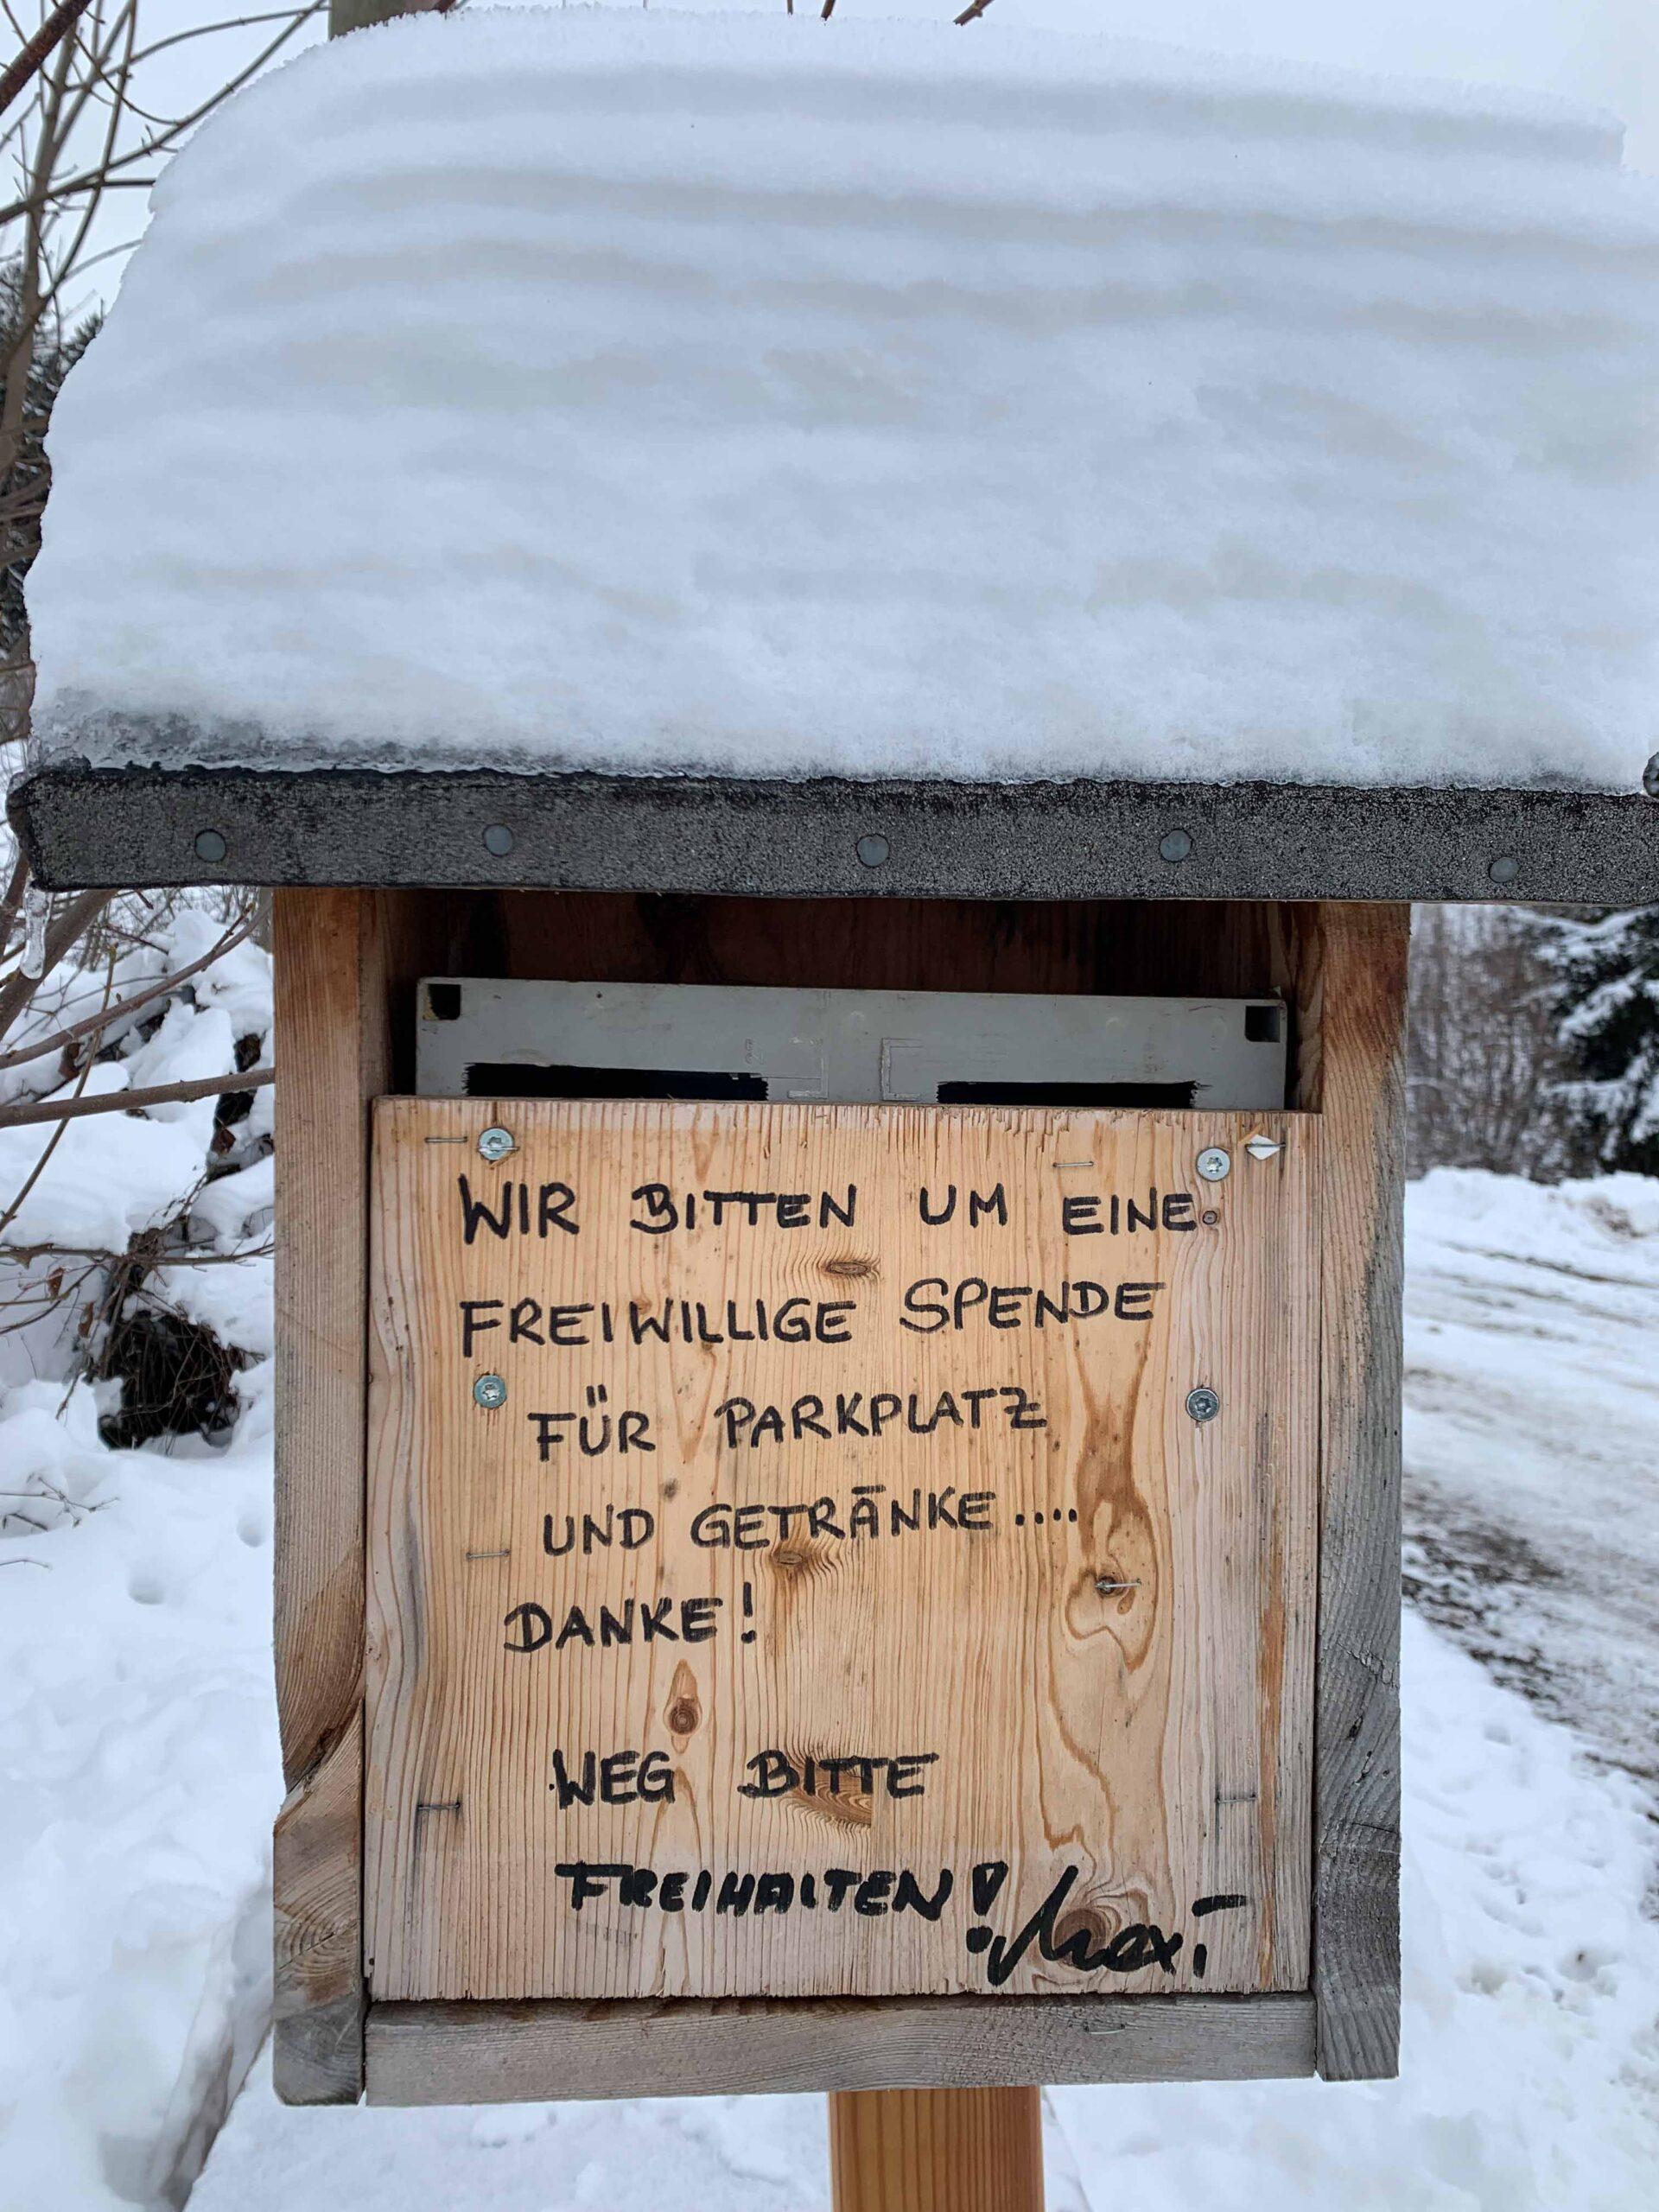 WIR BITTEN UM EINE
FREIWILLIGE SPENDE
FÜR PARKPLATZ
UND GETRÄNKE....
DANKE!
WEG BITTE
FREIHALTEN!
Maxi